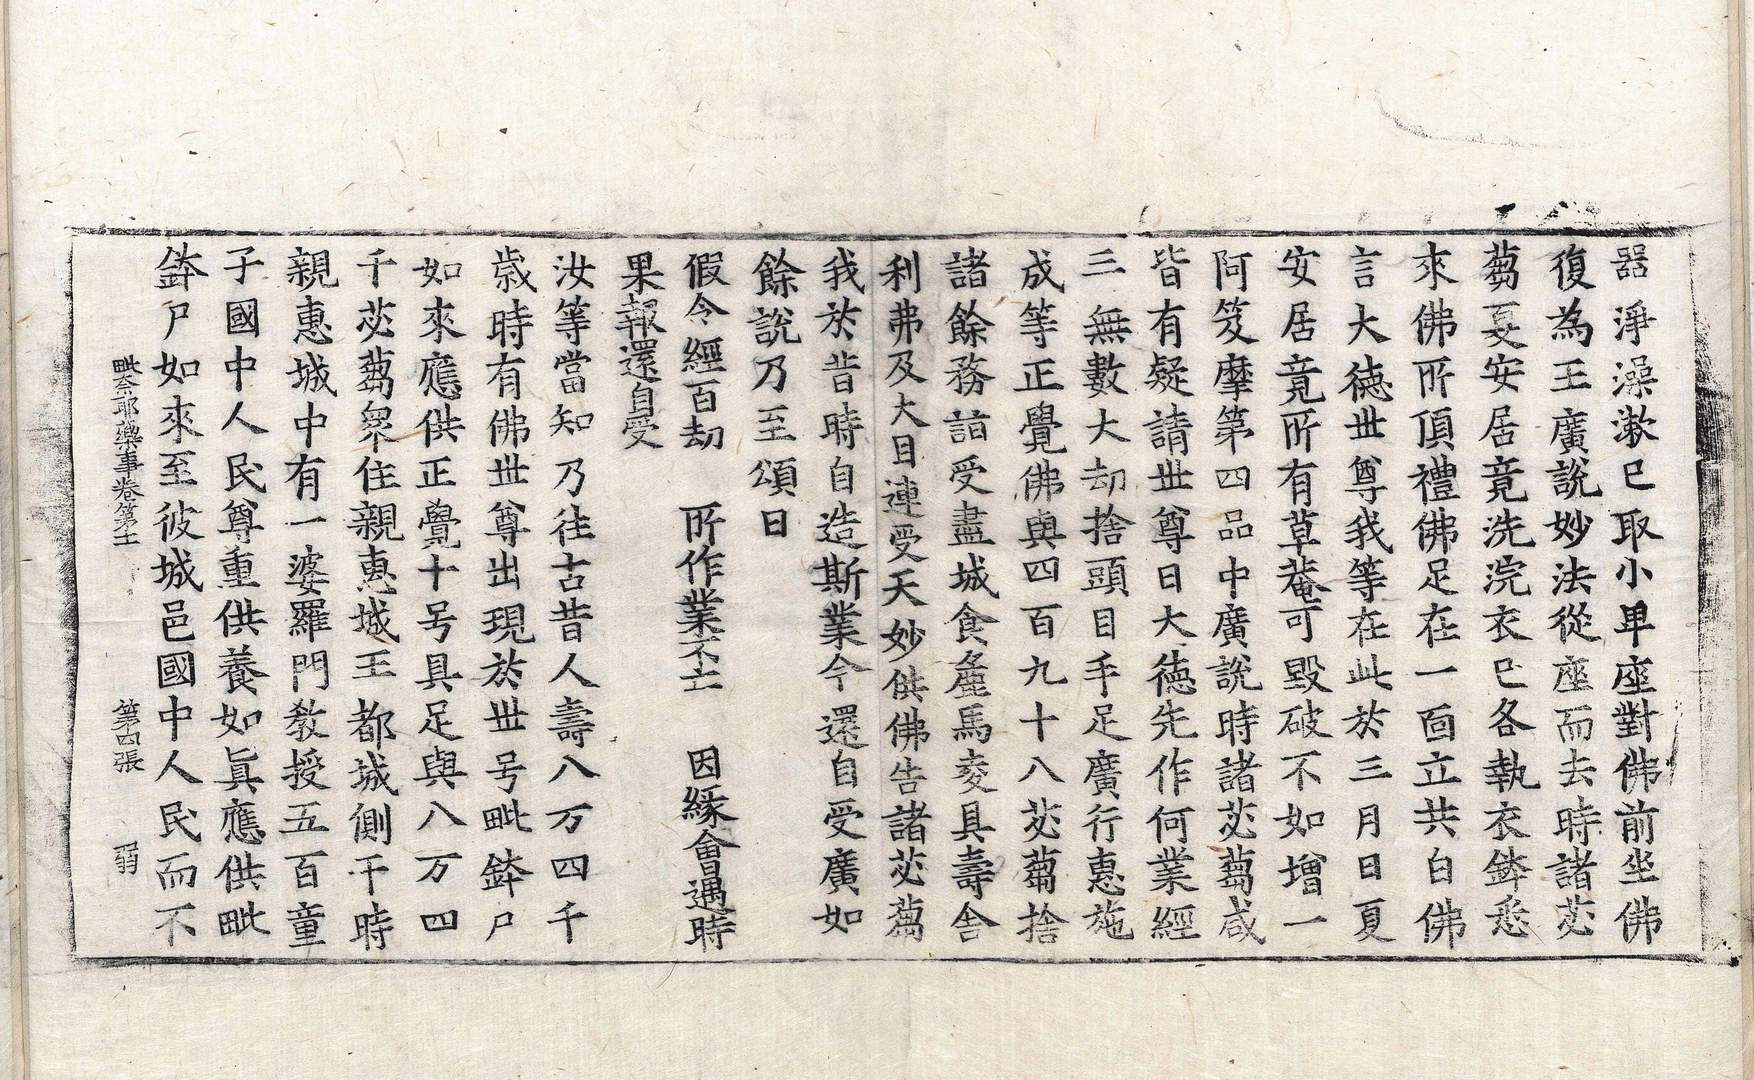 器淨澡漱已取小卑座對佛前坐佛
復為王廣說妙法從座而去時諸苾
蒭夏安居竟洗浣衣已各執衣鉢悉
來佛所頂禮佛足在一面立共白佛
言大德世尊我等在此於三月日夏
安居竟所有草菴可毀破不如增一
阿笈摩第四品中廣說時諸苾蒭咸
皆有疑請世尊曰大德先作何業經
三無數大劫捨頭目手足廣行惠施
成等正覺佛與四百九十八苾蒭捨
諸餘務詣受盡城食麁馬麥具壽舍
利弗及大目連受天妙供佛告諸苾蒭
我於昔時自造斯業今還自受廣如
餘說乃至頌曰
假令經百劫 所作業不亡 因緣會遇時
果報還自受
汝等當知乃往古昔人壽八万四千
歲時有佛世尊出現於世号毗鉢尸
如來應供正覺十号具足與八万四
千苾蒭衆住親惠城王都城側于時
親惠城中有一婆羅門教授五百童
子國中人民尊重供養如眞應供毗
鉢尸如來至彼城邑國中人民而不
毗奈耶藥事卷第十 第四張 弱